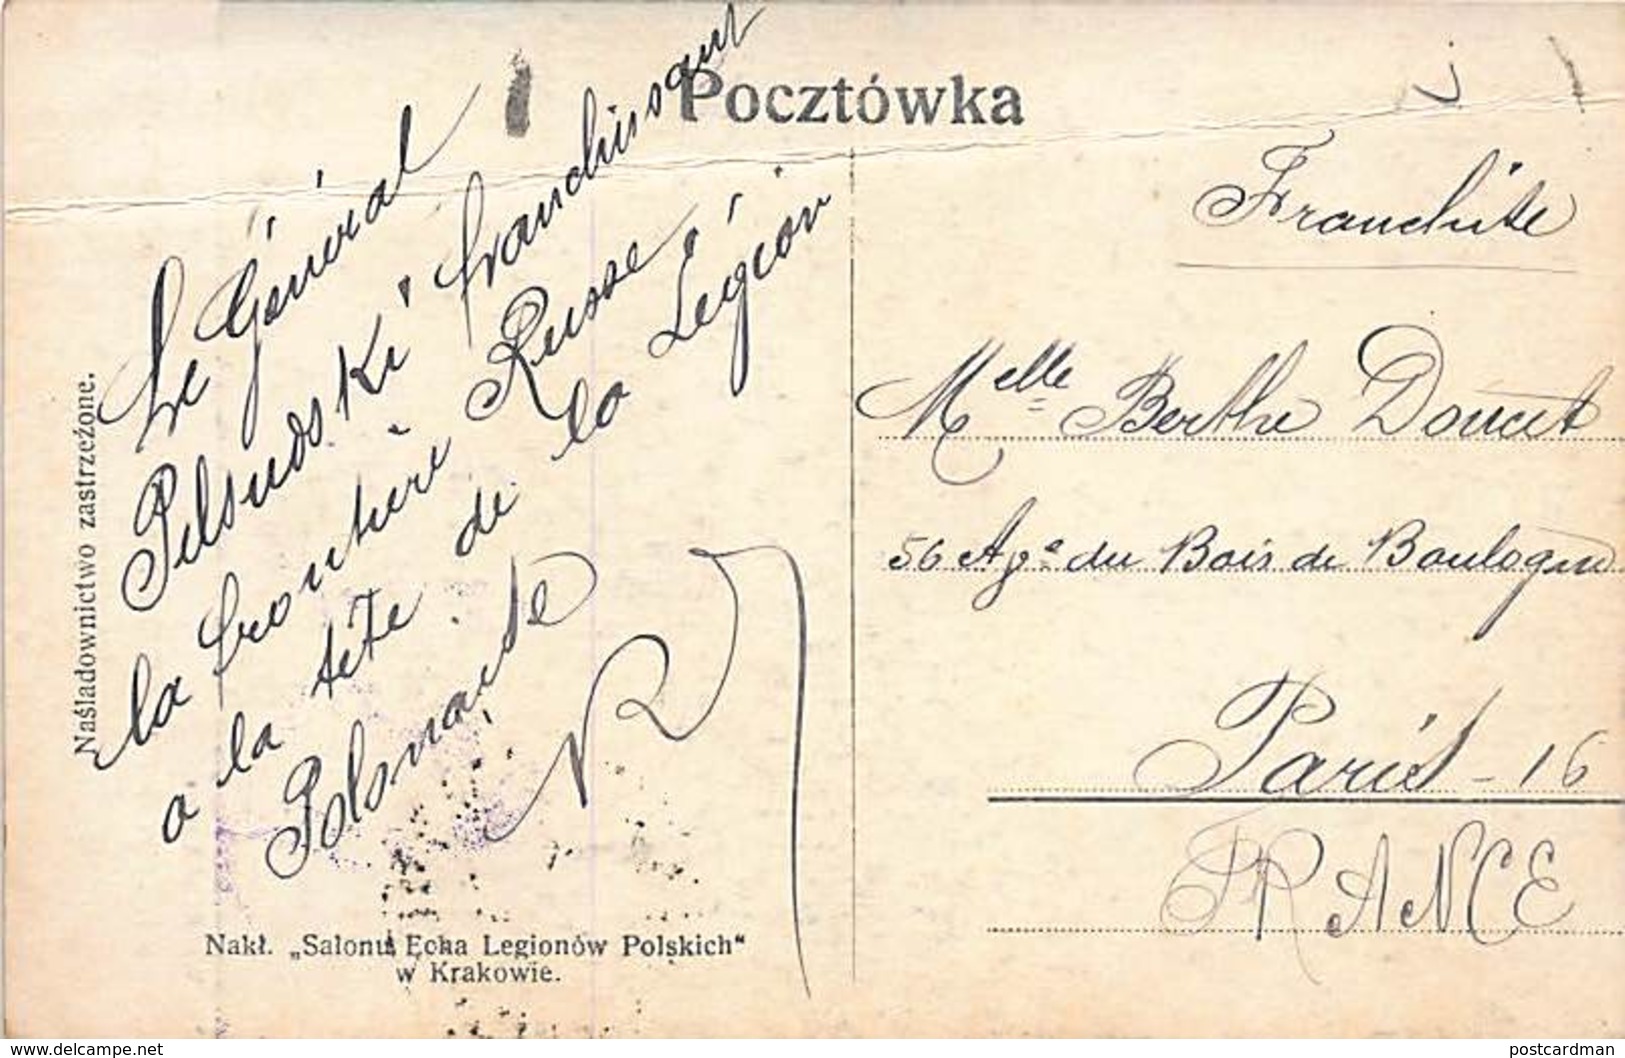 Pocztówka
Le Général
Pilsudski franchissant
la frontière Russe
a la tête de la Légion
Polonaise
Naśladownictwo zastrzeżone.
Nakł. „Salonu Echa Legionów Polskich"
w Krakowie.
Franchise
Melle Berthe Doucet
56 Ave du Bois de Boulogne
Paris - 16
FRANCE
www.delcampe.net
postcardman